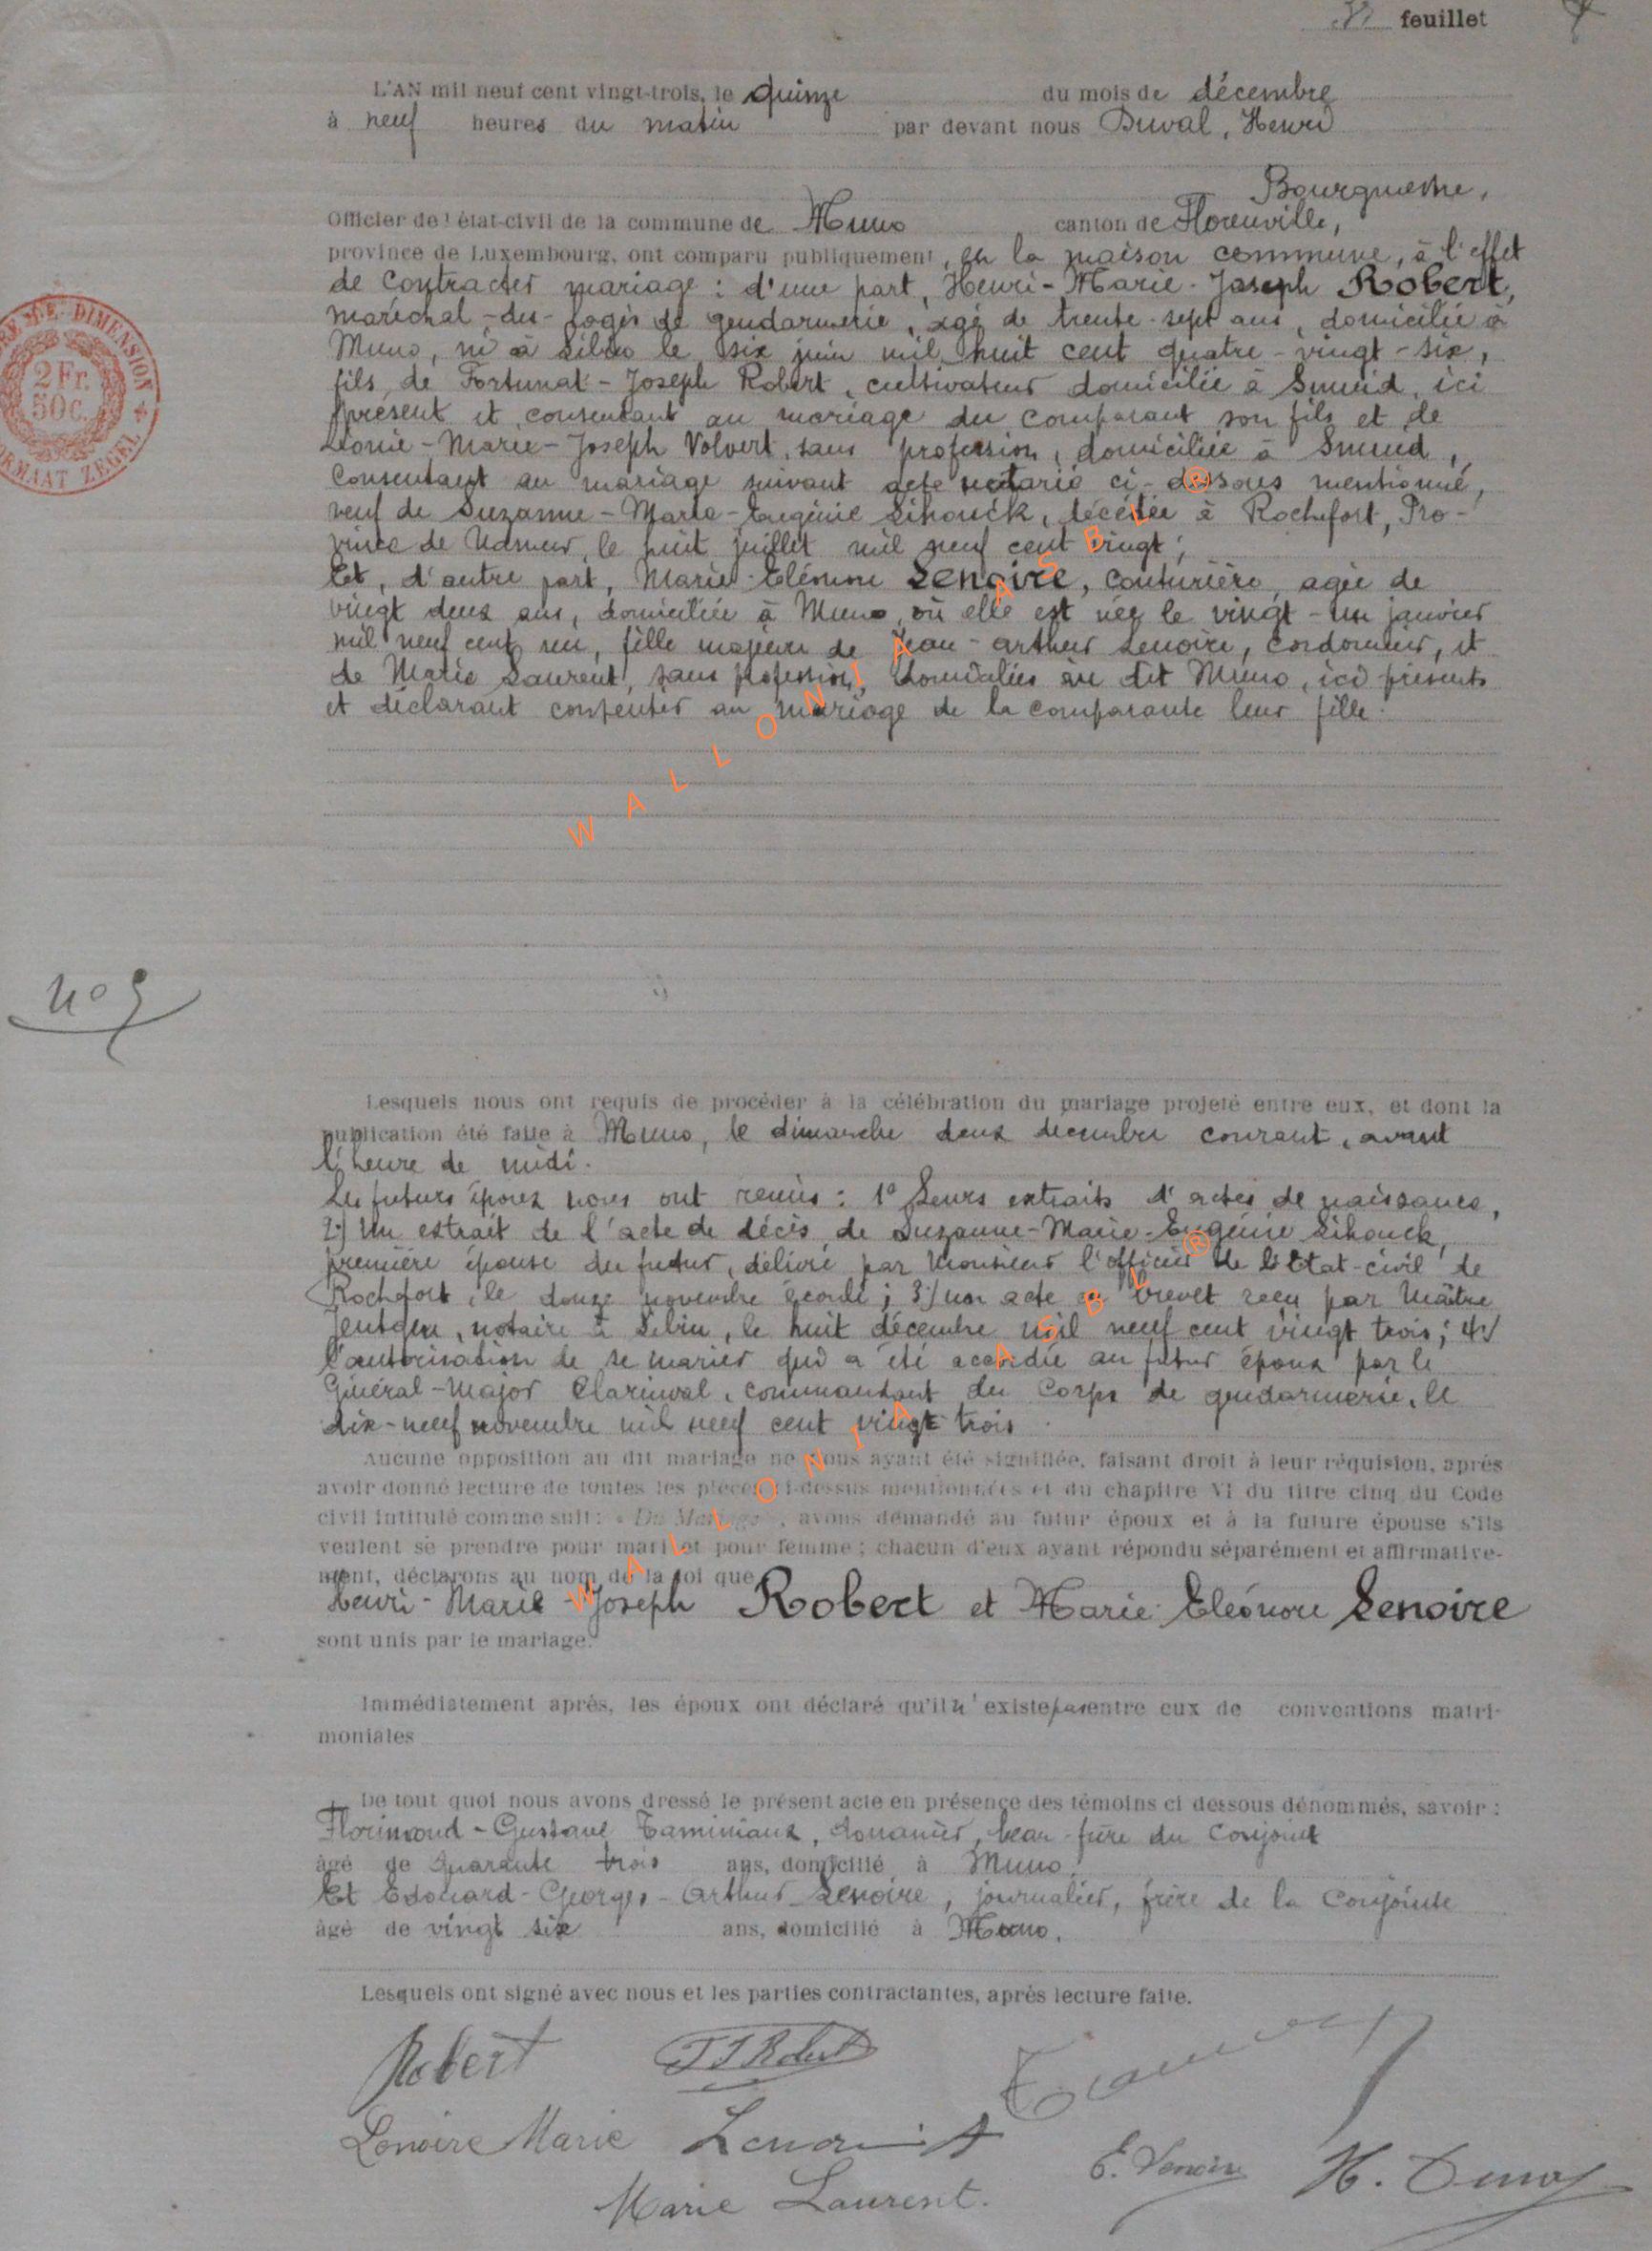 feuillet
L'AN mil neuf cent vingt-trois, le quinze du mois de décembre
à neuf heures du matin par devant nous Duval, Henri
Bourgmestre,
Officier de l'état-civil de la commune de Muno canton de Florenville,
province de Luxembourg, ont comparu publiquement, en la maison commune, à l'effet
de contracter mariage : d'une part, Henri-Marie-Joseph Robert,
maréchal-des-logis de gendarmerie, âgé de trente-sept ans, domicilié à
Muno, né à Sibin le six juin mil huit cent quatre-vingt-six,
fils de Fortunat-Joseph Robert, cultivateur domicilié à Smuid, ici
présent et consentant au mariage du comparant son fils et de
Léonie-Marie-Joseph Volvert, sans profession, domiciliée à Smuid,
consentant au mariage suivant acte notarié ci-dessous mentionné,
veuf de Suzanne-Marie-Eugénie Sihouck, décédée à Rochefort, Pro-
vince de Namur, le huit juillet mil neuf cent vingt ;
Et, d'autre part, Marie-Eléonore Lenoire, couturière, agée de
vingt deux ans, domiciliée à Muno, où elle est née le vingt-un janvier
mil neuf cent un, fille majeure de Jean-Arthur Lenoire, cordonnier, et
de Marie Laurent, sans profession, domiciliés au dit Muno, ici présents
et déclarant consentir au mariage de la comparante leur fille.
N° 9
Lesquels nous ont requis de procéder à la célébration du mariage projeté entre eux, et dont la
publication été faite à Muno, le dimanche deux décembre courant, avant
l'heure de midi.
Les futurs époux nous ont remis : 1° Leurs extraits d'actes de naissance,
2°) Un extrait de l'acte de décès de Suzanne-Marie-Eugénie Sihouck,
première épouse du futur, délivré par Monsieur l'officier de l'Etat-civil de
Rochefort, le douze novembre écoulé ; 3°) un acte en brevet reçu par Maître
Jentgen, notaire à Sibin, le huit décembre mil neuf cent vingt trois ; 4°)
l'autorisation de se marier qui a été accordée au futur époux par le
Général-Major Clarinval, commandant du Corps de gendarmerie, le
dix-neuf novembre mil neuf cent vingt trois.
Aucune opposition au dit mariage ne nous ayant été signifiée, faisant droit à leur réquision, après
avoir donné lecture de toutes les pièces ci-dessus mentionnées et du chapitre VI du titre cinq du Code
civil intitulé comme suit : « Du Mariage », avons demandé au futur époux et à la future épouse s'ils
veulent se prendre pour mari et pour femme ; chacun d'eux ayant répondu séparément et affirmative-
ment, déclarons au nom de la loi que
Henri-Marie-Joseph Robert et Marie-Eléonore Lenoire
sont unis par le mariage.
Immédiatement après, les époux ont déclaré qu'il n'existe pas entre eux de conventions matri-
moniales
De tout quoi nous avons dressé le présent acte en présence des témoins ci dessous dénommés, savoir :
Florimond-Gustave Taminiaux, douanier, beau-frère du conjoint
âgé de quarante trois ans, domicilié à Muno.
Et Edouard-Georges-Arthur Lenoire, journalier, frère de la conjointe
âgé de vingt six ans, domicilié à Muno.
Lesquels ont signé avec nous et les parties contractantes, après lecture faite.
Robert
Lenoire Marie
Marie Laurent.
E. Lenoire
H. Duval
2 Fr.
50 c.
WALLONIA ASBL ®
WALLONIA ASBL ®